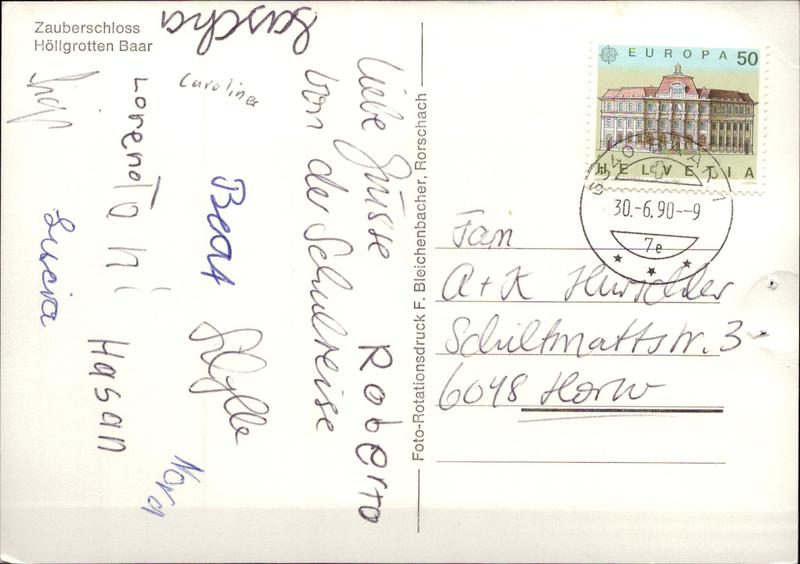 Zauberschloss
Höllgrotten Baar
Liebe Grüsse
von der Schulreise
Sascha
Roberto
Caroline
Beat
Sibylle
Nora
Lorendta
Hasan
Lucia
Foto-Rotationsdruck F. Bleichenbacher, Rorschach
EUROPA 50
HELVETIA
30.-6.90--9
7e
Fam
A+K Hurschler
Schiltmattstr. 3
6048 Horw